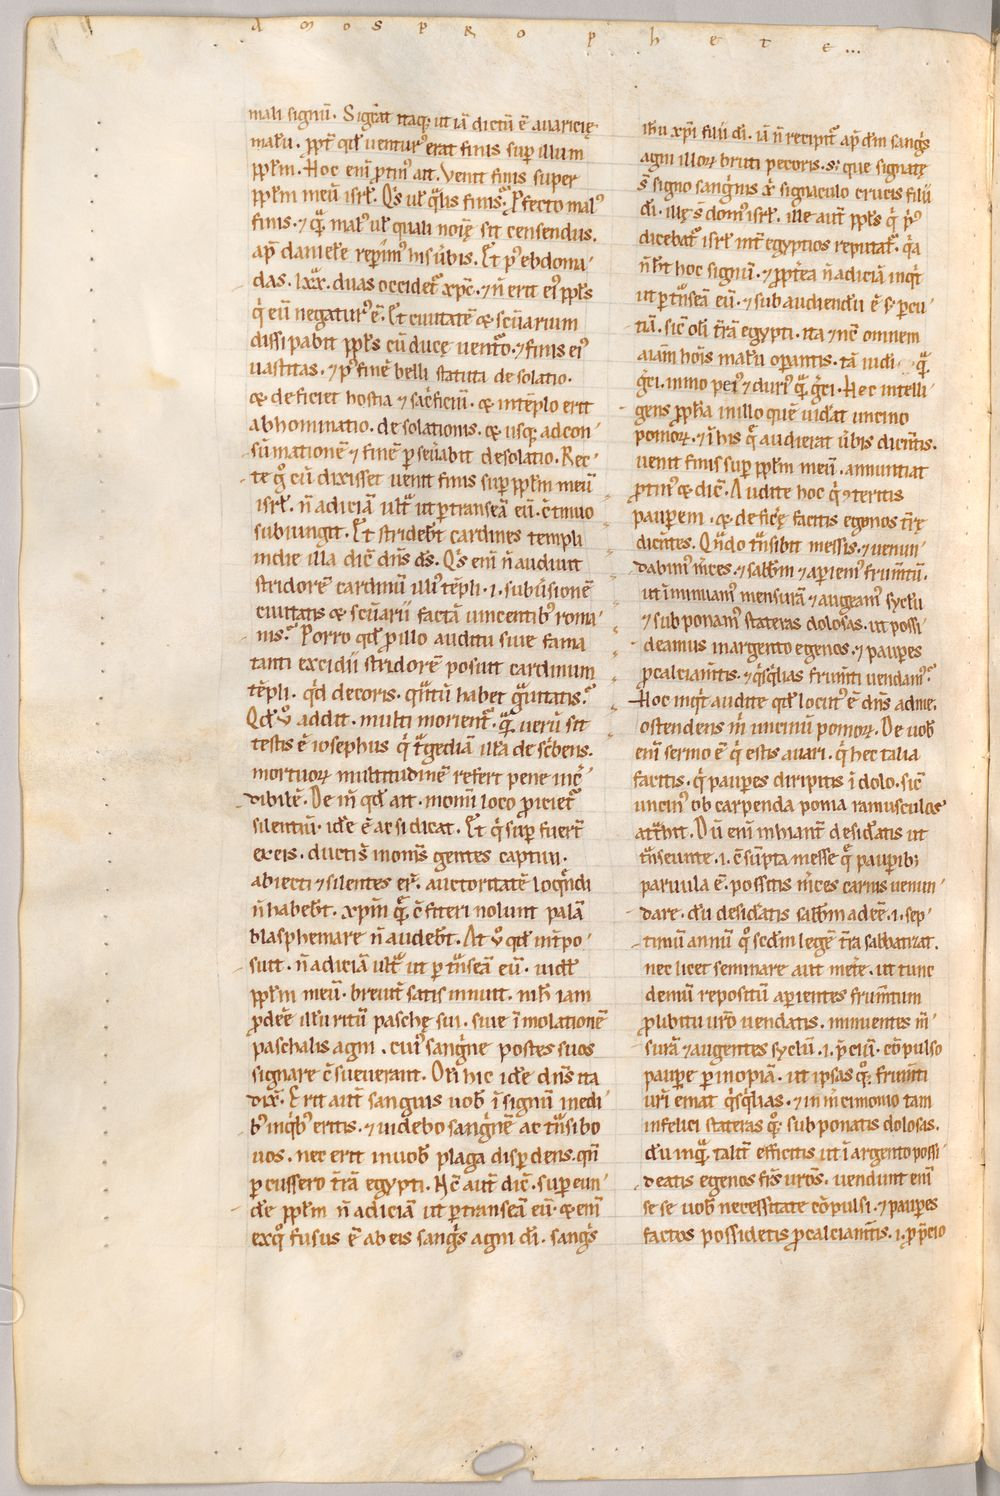 amos pro phete...
mali signū. Sigt̄at itaq; ut iā dictū ē auaricię
malū. ꝓpt̄ qd̄ ventur᾽ erat finis sup̄ illum
ppl̄m. Hoc eni ꝓtin᾽ ait. Venit finis super
ppl̄m meū isrl̄. Qͥs ul̄ qͣlis finis? Ꝓfecto mal᾽
finis. ⁊ qͣ mal᾽ ul̄ quali noīe sit censendus.
ap̄ daniele rep̄im᾽ his ūbis. Et p᾽ ebdoma-
das. lxx. duas occidet᷑ xp̄c. ⁊ n̄ erit ei᾽ ppl̄s
qͥ eū negatur᾽ ē. Et ciuitatē & scūarium
dissipabit ppl̄s cū duce vent᷑o. ⁊ finis ei᾽
uastitas. ⁊ p᾽ finē belli statuta desolatio.
& deficiet hostia ⁊ sac̄ficiū. & in tēplo erit
abhominatio. desolationis. & usq; ad con-
sūmationē ⁊ finē ꝑseuābit desolatio. Rec-
te gͦ cū dixisset venit finis sup̄ ppl̄m meū
isrl̄. n̄ adiciā ult᷑ ut ꝑtranseā eū. c̄tinuo
subiungit. Et stridebt̄ cardines templi
in die illa dic̄ dn̄s ds̄. Qͥs enī n̄ audiuit
stridorē cardinū illi᾽ tēpli .i. subūsionē
ciuitatis & scūarii factā uincentib᾽ roma-
nis? Porro qd̄ ꝓ illo auditu siue fama
tanti excidii stridorē posuit cardinum
tēpli. qͥd decoris. qͣntū habet gͣuitatis?
Qd̄ ū addit. multi morient᷑. qͣ verū sit
testis ē iosephus qͥ t̄gediā illā desc̄bens.
mortuoꝝ multitudinē refert pene inc̄-
dibilē. De īn qd̄ ait. in omni loco ꝓiciet᷑
silentiū. idē ē ac si dicat. Et qͥ sup̄ fuert̄
ex eis. ducti s̄ in omīs gentes captiui.
abiecti ⁊ silentes er̄. auctoritatē loqn̄di
n̄ habebt̄. xpm̄ qͣ c̄fiteri nolunt palā
blasphemare n̄ audebt̄. At ū qd̄ int̄po-
suit. n̄ adiciā ult᷑ ut ꝑtn̄seā eū. uidel̄
ppl̄m meū. breuit̄ satis innuit. nich̄ iam
ꝓdeē illū ritū paschę sui. siue īmolationē
paschalis agni. cui᾽ sangͥne postes suos
signare c̄sueuerant. Olī hic idē dn̄s ita
dix̄. Erit aut̄ sanguis uob̄ ī signū in edi-
b᾽ in qͥb᾽ eritis. ⁊ uidebo sangͥnē ac tn̄sibo
uos. nec erit in uob̄ plaga disꝑdens. qn̄
ꝑcussero t̄rā egypti. Nc̄ aut̄ dic̄. super eun-
dē ppl̄m n̄ adiciā ut ꝑtranseā eū. & enī
ex qͦ fusus ē ab eis sangͥs agni dī. sangͥs
ih̄u xp̄i filii dī. iā n̄ recipit᷑ ap̄ dm̄ sangͥs
agni illoꝝ bruti pecoris. s; que signatę
s̄ signo sangͥnis xp̄i signaculo crucis filii
dī. illę s̄ dom᾽ isrl̄. ille aut̄ ppl̄s qͥ pͥ᾽
dicebat᷑ isrl̄ int̄ egyptios reputat᷑. qͥa
n̄ ht̄ hoc signū. ⁊ ꝓpt̄ea n̄ adiciā inqͥt
ut ꝑtn̄seā eū. ⁊ subaudiendū ē s; ꝑcu-
tiā. sic̄ olī t̄rā egypti. ita ⁊ nc̄ omnem
aīam hoīs malū oꝑantis. tā iudi qͣ
gͤci. immo pei᾽ ⁊ duri᾽ qͣ gͤci. Hec intelli-
gens ꝓph̄a in illo quē uidit uncino
pomoꝝ. ⁊ ī his qͣ audierat ūbis dicn̄tis.
venit finis sup̄ ppl̄m meū. annuntiat
ꝓtin᾽ & dic̄. Audite hoc qͥ ꝯteritis
pauperem. & deficę facitis egenos t̄rę
dicn̄tes. Qn̄do tn̄sibit messis. ⁊ uenun-
dabim᾽ m̄ces. ⁊ sabb̄m ⁊ aꝑiem᾽ frum̄tū.
ut īminuam᾽ mensurā ⁊ augeam᾽ syclū
⁊ subponam᾽ stateras dolosas. ut possi-
deamus in argento egenos. ⁊ pauperes
ꝓ calciam̄tis. ⁊ qͥsqͥlias frum̄ti vendam᾽?
Hoc inqͥt audite qd̄ locut᾽ ē dn̄s ad me.
ostendens m̄ uncinū pomoꝝ. De uob̄
enī sermo ē qͥ estis auari. qͥ hec talia
facitis. qͥ pauperes diripitis ī dolo. sic̄
uncin᾽ ob carpenda poma ramusculos
att̄hit. Dū enī inhiant̄ desidatis ut
tn̄seunte .i. c̄sūpta messe qͣ pauꝑib;
paruula ē. possitis m̄ces carnis uenun-
dare. dū desidatis sabb̄m adeē .i. sep-
timū annū qͦ scdm̄ legē t̄ra sabbatizat.
nec licet seminare aut met̄e. ut tunc
demū repositū aꝑientes frum̄tum
ꝓ libitu ur̄o vendatis. minuentes m̄-
surā ⁊ augentes syclū .i. p̄ciū. cōpulso
pauꝑe ꝑ inopiā. ut ipsas qͦ; frum̄ti
ur̄i emat qͥsqͥlias. ⁊ in m̄cimonio tam
infelici stateras qͦ; subponatis dolosas.
dū inqͣ talit̄ efficitis ut ī argento possi-
deatis egenos fr̄s ur̄os. vendunt enī
se se uob̄ necessitate cōpulsi. ⁊ pauperes
factos possidetis ꝓ calciam̄tis .i. ꝓ p̄cio